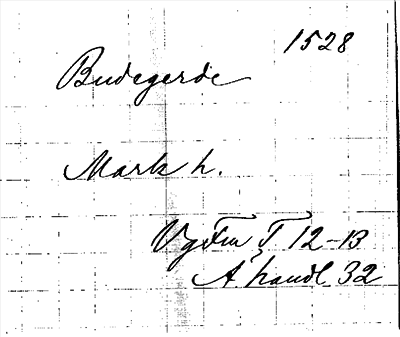 1528
Budegerde
Mark h.
VgFm T 12-13
A handl 32